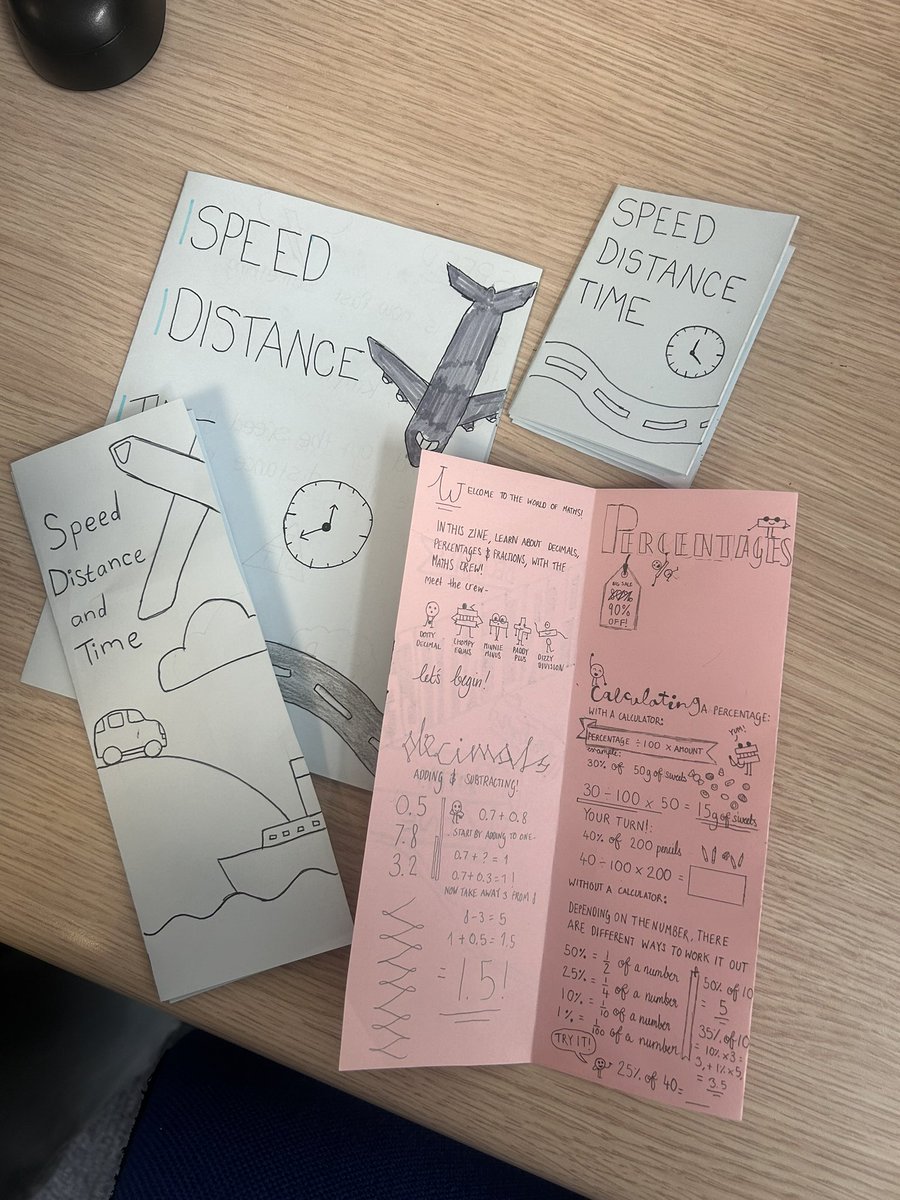 SPEED
DISTANCE
SPEED
DISTANCE
TIME
Speed
Distance
and
Time
WELCOME TO THE WORLD OF MATHS!
IN THIS ZINE, LEARN ABOUT DECIMALS,
PERCENTAGES & FRACTIONS, WITH THE
MATHS CREW!
meet the crew-
DOTTY
DECIMAL
CHOMPY
EQUALS
MINNIE
MINUS
PADDY
PLUS
DIZZY
DIVISION
let's begin!
decimals
ADDING & SUBTRACTING!
0.5
7.8
3.2
0.7 + 0.8
START BY ADDING TO ONE-
0.7 + ? = 1
0.7 + 0.3 = 1!
NOW TAKE AWAY 3 FROM 8
8-3 = 5
1 + 0.5 = 1.5
= 1.5!
PERCENTAGES
BIG SALE
90%
OFF!
Calculating A PERCENTAGE:
WITH A CALCULATOR:
PERCENTAGE ÷ 100 × AMOUNT
example:
30% of 50g of sweets
YUM!
30 ÷ 100 × 50 = 15g of sweets
YOUR TURN!:
40% of 200 pencils
40 ÷ 100 × 200 =
WITHOUT A CALCULATOR:
DEPENDING ON THE NUMBER, THERE
ARE DIFFERENT WAYS TO WORK IT OUT
50% = 1/2 of a number
25% = 1/4 of a number
10% = 1/10 of a number
1% = 1/100 of a number
50% of 10
= 5
35% of 10
= 10% × 3 =
3, + 1% × 5,
= 3.5
TRY IT!
25% of 40 =